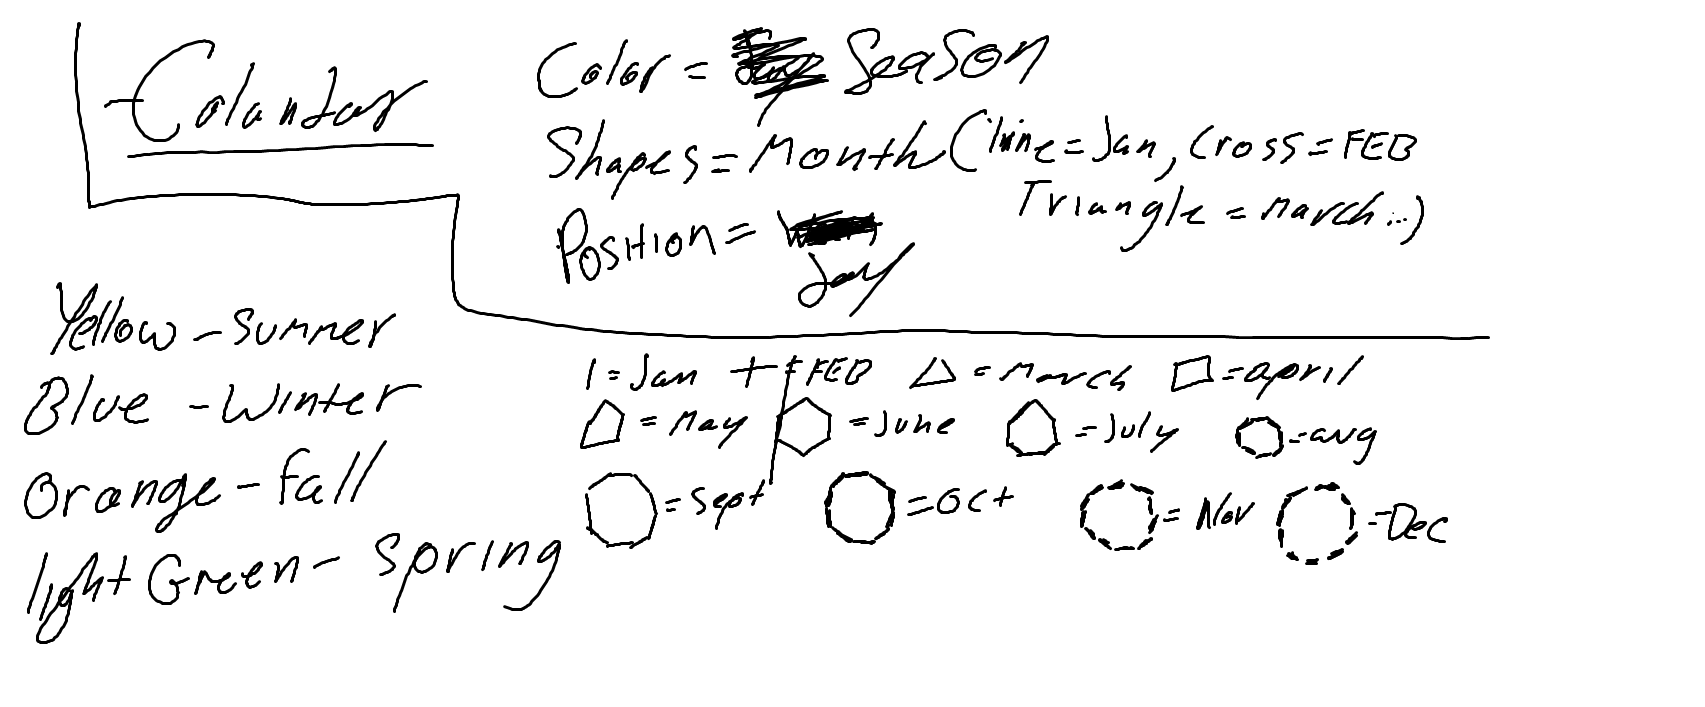 -Colandar
Color = Season
Shapes = Month (line = Jan, Cross = FEB
Triangle = March...)
Position =
Day
Yellow - Summer
Blue - Winter
Orange - Fall
light Green - Spring
| = Jan + = FEB △ = March □ = april
= May = June = July = aug
= Sept = Oct = Nov = Dec